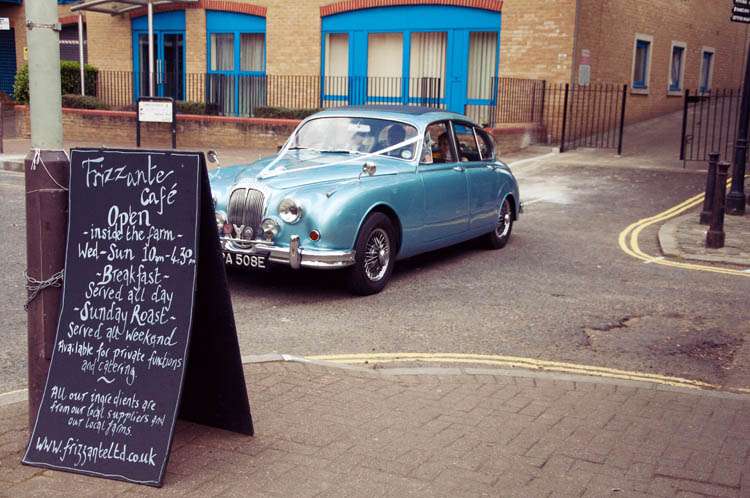 Frizzante
Café
Open
- inside the farm -
Wed - Sun 10am - 4.30pm
- Breakfast -
Served all day
- Sunday Roast -
Served all weekend
Available for private functions
and catering
~
All our ingredients are
from our local suppliers and
our local farms.
www.frizzanteltd.co.uk
PA 508E